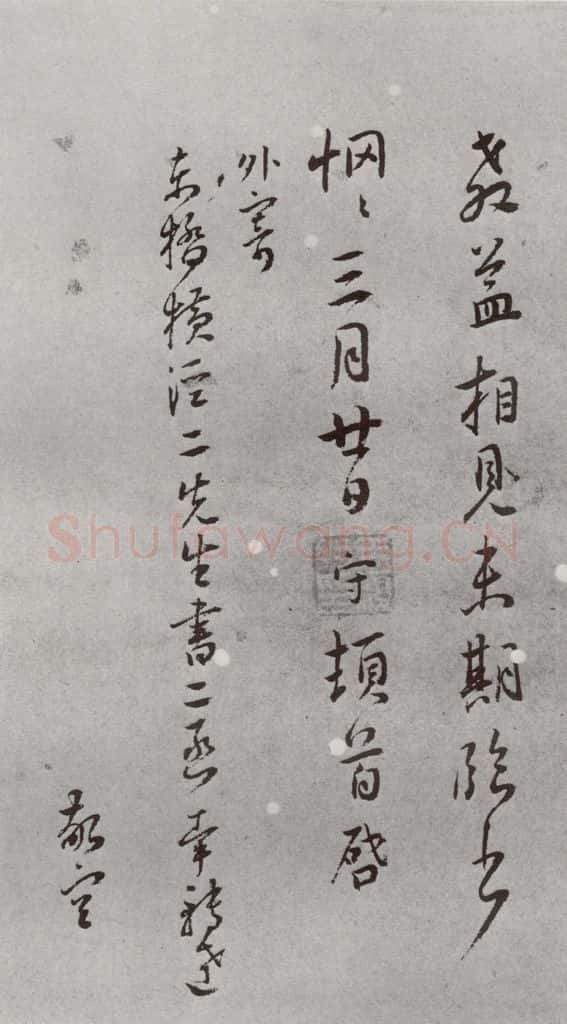 教益相見未期臨書
惘惘三月廿日守頓首啓
外寄
東橋橫涇二先生書二函幸轉達
敬空
Shufawang.CN